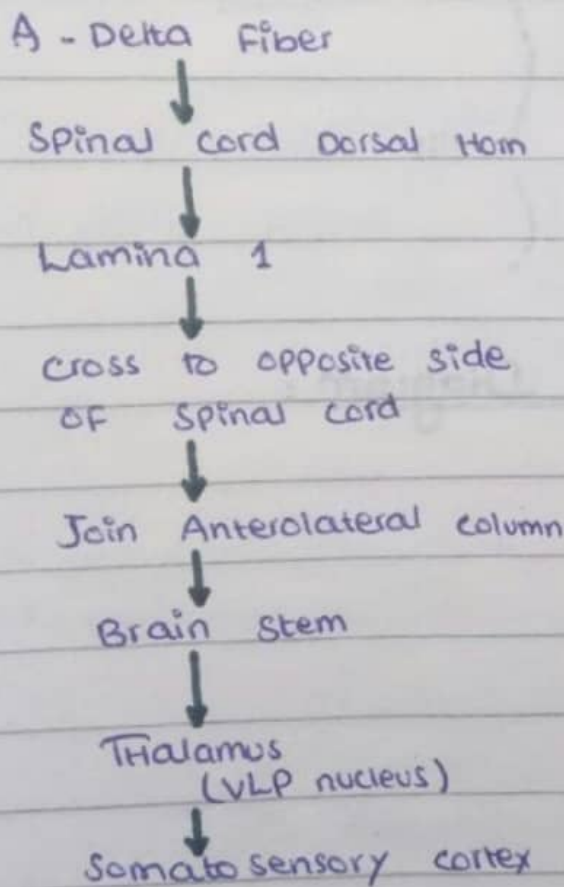 A - Delta Fiber
Spinal cord Dorsal Horn
Lamina 1
cross to opposite side
of spinal cord
Join Anterolateral column
Brain stem
Thalamus
(VLP nucleus)
Somatosensory cortex